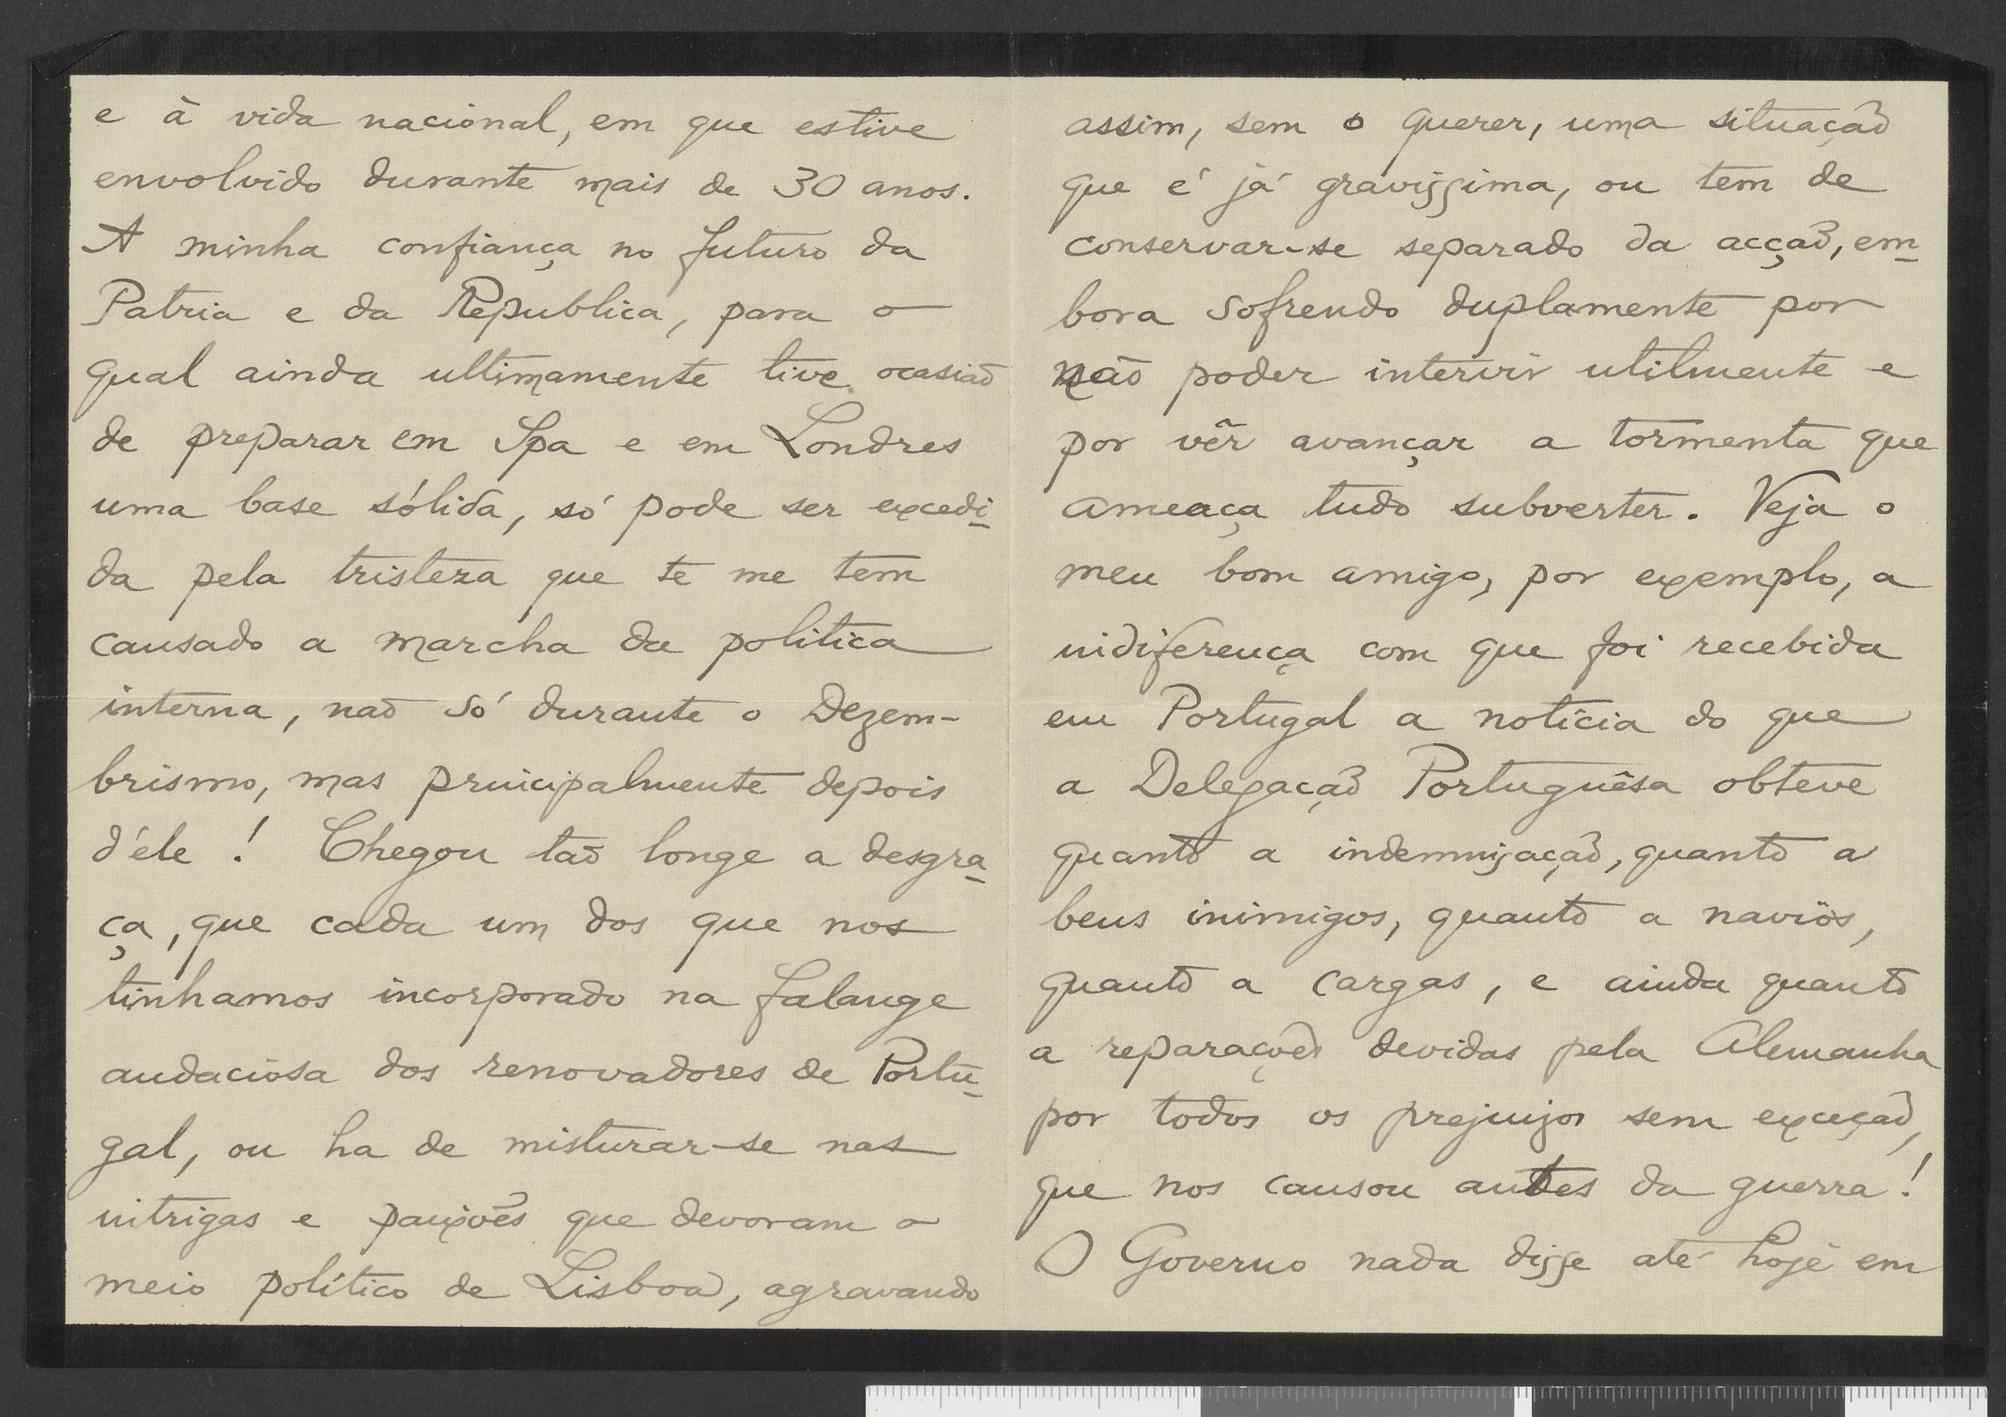 e à vida nacional, em que estive
envolvido durante mais de 30 anos.
A minha confiança no futuro da
Patria e da Republica, para o
qual ainda ultimamente tive ocasião
de preparar em Spa e em Londres
uma base sólida, só pode ser excedi-
da pela tristeza que te me tem
causado a marcha da politica
interna, não só durante o Dezem-
brismo, mas principalmente depois
d'éle! Chegou tão longe a desgra-
ça, que cada um dos que nos
tinhamos incorporado na falange
audaciosa dos renovadores de Portu-
gal, ou ha de misturar-se nas
intrigas e paixões que devoram o
meio político de Lisboa, agravando
assim, sem o querer, uma situação
que é já gravissima, ou tem de
conservar-se separado da acção, em-
bora sofrendo duplamente por
não poder intervir utilmente e
por vêr avançar a tormenta que
ameaça tudo subverter. Veja o
meu bom amigo, por exemplo, a
indiferença com que foi recebida
em Portugal a notícia do que
a Delegação Portuguêsa obteve
quanto a indemnisação, quanto a
bens inimigos, quanto a navios,
quanto a cargas, e ainda quanto
a reparações devidas pela Alemanha
por todos os prejuizos sem exceção,
que nos causou antes da guerra!
O Governo nada disse até hoje em